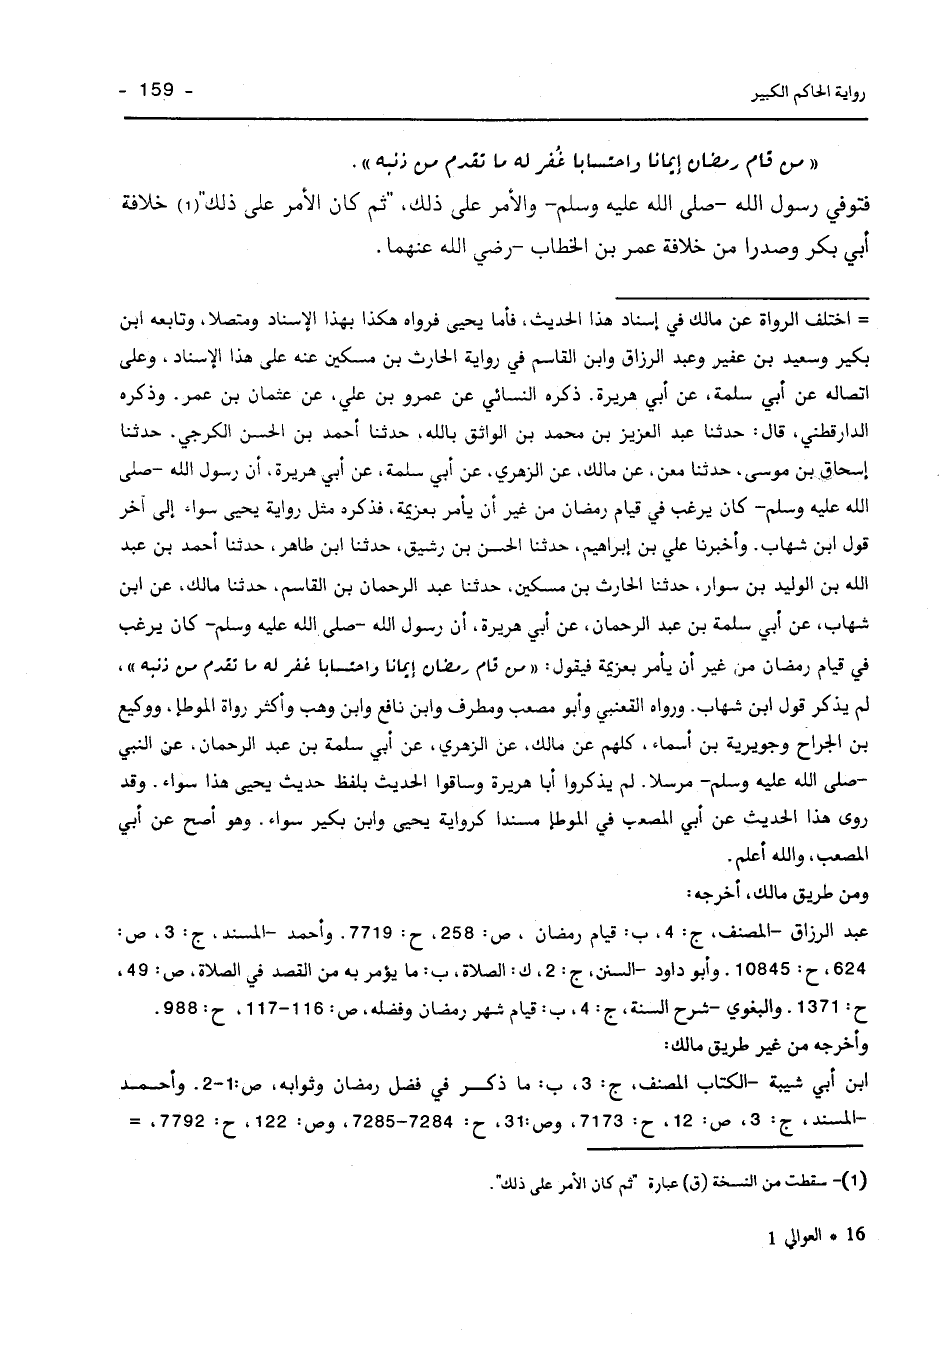 رواية الحاكم الكبير
- 159 -
« من قام رمضان إيمانا واحتسابا غُفر له ما تقدم من ذنبه » .
فتوفي رسول الله -صلى الله عليه وسلم- والأمر على ذلك، "ثم كان الأمر على ذلك"(1) خلافة
أبي بكر وصدرا من خلافة عمر بن الخطاب -رضي الله عنهما .
= اختلف الرواة عن مالك في إسناد هذا الحديث، فأما يحيى فرواه هكذا بهذا الإسناد ومتصلا، وتابعه ابن
بكير وسعيد بن عفير وعبد الرزاق وابن القاسم في رواية الحارث بن مسكين عنه على هذا الإسناد ، وعلى
اتصاله عن أبي سلمة، عن أبي هريرة. ذكره النسائي عن عمرو بن علي، عن عثمان بن عمر. وذكره
الدارقطني، قال: حدثنا عبد العزيز بن محمد بن الواثق بالله، حدثنا أحمد بن الحسن الكرجي. حدثنا
إسحاق بن موسى، حدثنا معن، عن مالك، عن الزهري، عن أبي سلمة، عن أبي هريرة، أن رسول الله -صلى
الله عليه وسلم- كان يرغب في قيام رمضان من غير أن يأمر بعزيمة، فذكره مثل رواية يحيى سواء إلى آخر
قول ابن شهاب. وأخبرنا علي بن إبراهيم، حدثنا الحسن بن رشيق، حدثنا ابن طاهر، حدثنا أحمد بن عبد
الله بن الوليد بن سوار، حدثنا الحارث بن مسكين، حدثنا عبد الرحمان بن القاسم، حدثنا مالك، عن ابن
شهاب، عن أبي سلمة بن عبد الرحمان، عن أبي هريرة، أن رسول الله -صلى الله عليه وسلم- كان يرغب
في قيام رمضان من غير أن يأمر بعزيمة فيقول: « من قام رمضان إيمانا واحتسابا غفر له ما تقدم من ذنبه » ،
لم يذكر قول ابن شهاب. ورواه القعنبي وأبو مصعب ومطرف وابن نافع وابن وهب وأكثر رواة الموطإ، ووكيع
بن الجراح وجويرية بن أسماء ، كلهم عن مالك، عن الزهري، عن أبي سلمة بن عبد الرحمان، عن النبي
-صلى الله عليه وسلم- مرسلا. لم يذكروا أبا هريرة وساقوا الحديث بلفظ حديث يحيى هذا سواء . وقد
روى هذا الحديث عن أبي المصعب في الموطإ مسندا كرواية يحيى وابن بكير سواء . وهو أصح عن أبي
المصعب، والله أعلم.
ومن طريق مالك، أخرجه:
عبد الرزاق -المصنف، ج: 4، ب: قيام رمضان ، ص: 258، ح: 7719. وأحمد -المسند، ج: 3، ص:
624، ح: 10845. وأبو داود -السنن، ج: 2، ك: الصلاة، ب: ما يؤمر به من القصد في الصلاة، ص: 49،
ح: 1371. والبغوي -شرح السنة، ج: 4، ب: قيام شهر رمضان وفضله، ص: 116-117، ح: 988.
وأخرجه من غير طريق مالك:
ابن أبي شيبة -الكتاب المصنف، ج: 3، ب: ما ذكر في فضل رمضان وثوابه، ص:1-2. وأحمد
-المسند، ج: 3، ص: 12، ح: 7173، وص:31، ح: 7284-7285، وص: 122، ح: 7792، =
(1)- سقطت من النسخة (ق) عبارة "ثم كان الأمر على ذلك".
16 * العوالي 1